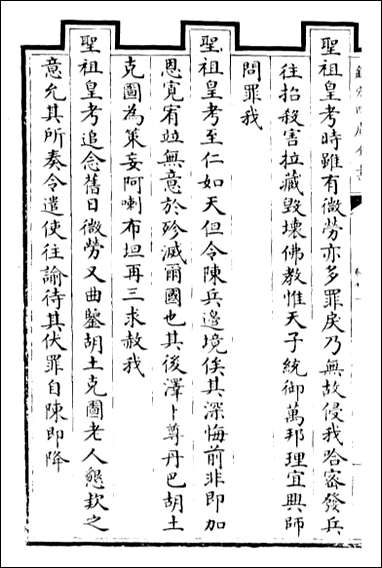 聖祖皇考時雖有微勞亦多罪戾乃無故侵我哈密發兵
往招殺害拉藏毀壞佛教惟天子統御萬邦理宜興師
問罪我
聖祖皇考至仁如天但令陳兵邊境俟其深悔前非即加
恩寬宥竝無意於殄滅爾國也其後澤卜尊丹巴胡土
克圖為策妄阿喇布坦再三求赦我
聖祖皇考追念舊日微勞又曲鑒胡土克圖老人懇欵之
意允其所奏令遣使往諭待其伏罪自陳即降